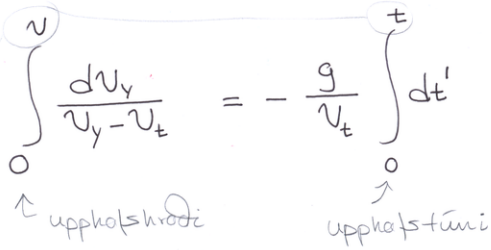 v t
∫ dv_y / (v_y - v_t) = - g / v_t ∫ dt'
0 0
upphafshraði upphafstími